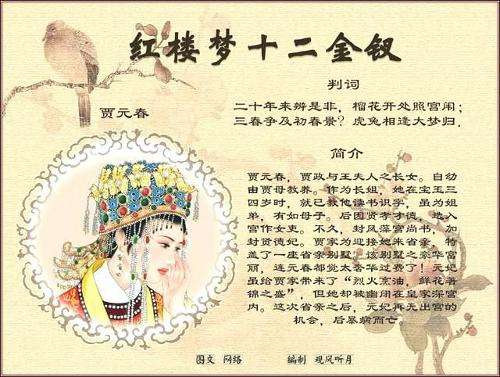 红楼梦十二金钗
判词
贾元春
二十年来辨是非，榴花开处照宫闱；
三春争及初春景？虎兔相逢大梦归。
简介
贾元春，贾政与王夫人之长女。自幼
由贾母教养。作为长姐，她在宝玉三
四岁时，就已教他读书识字，虽为姐
弟，有如母子。后因贤孝才德，选入
宫作女吏。不久，封凤藻宫尚书，加
封贤德妃。贾家为迎接她来省亲，特
盖了一座省亲别墅。该别墅之豪华富
丽，连元春都觉太奢华过费了！元妃
虽给贾家带来了“烈火烹油，鲜花著
锦之盛”，但她却被幽闭在皇家深宫
内。这次省亲之后，元妃再无出宫的
机会，后暴病而亡。
图文 网络 编制 观风听月